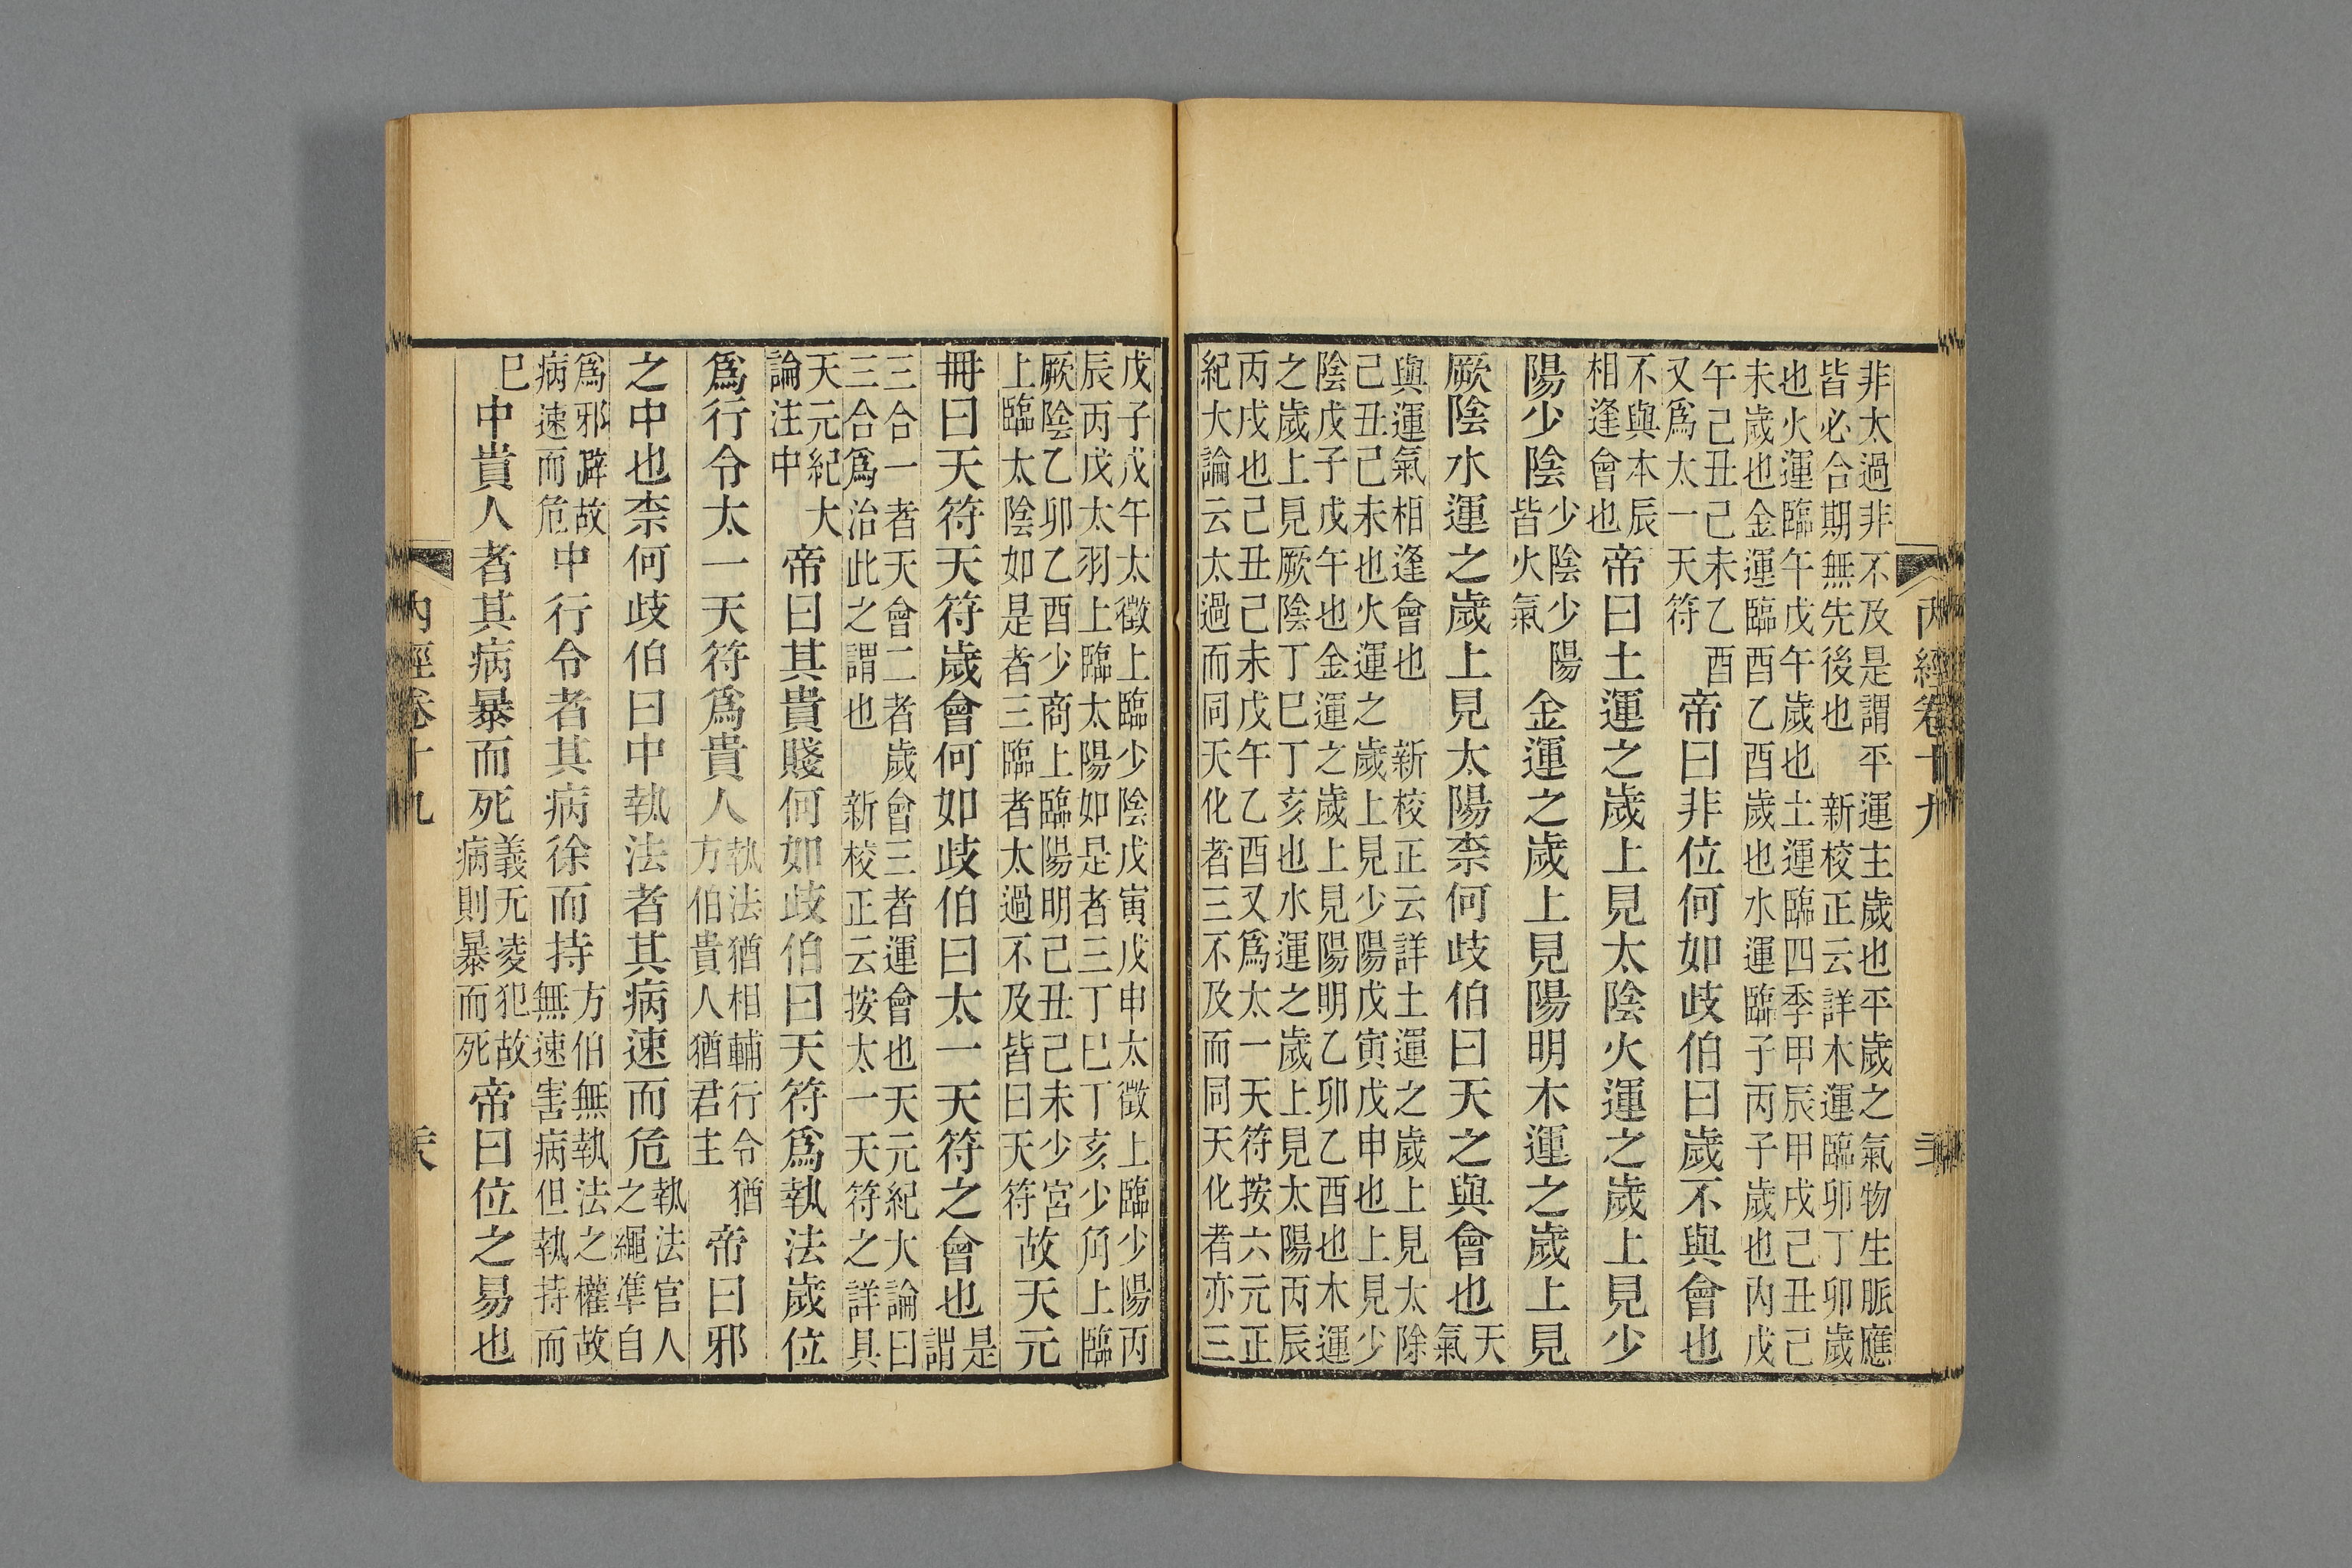 内經卷十九
非太過非不及是謂平運主歲也平歲之氣物生脈應
皆必合期無先後也 新校正云詳木運臨卯丁卯歲
也火運臨午戊午歲也土運臨四季甲辰甲戌己丑己
未歲也金運臨酉乙酉歲也水運臨子丙子歲也內戊
午己丑己未乙酉又爲太一天符帝曰非位何如歧伯曰歲不與會也
不與本辰相逢會也帝曰土運之歲上見太陰火運之歲上見少
陽少陰少陰少陽皆火氣金運之歲上見陽明木運之歲上見
厥陰水運之歲上見太陽柰何歧伯曰天之與會也天氣
與運氣相逢會也 新校正云詳土運之歲上見太除
己丑己未也火運之歲上見少陽戊寅戊申也上見少
陰戊子戊午也金運之歲上見陽明乙卯乙酉也木運
之歲上見厥陰丁巳丁亥也水運之歲上見太陽丙辰
丙戌也己丑己未戊午乙酉又爲太一天符按六元正
紀大論云太過而同天化者三不及而同天化者亦三
戊子戊午太徵上臨少陰戊寅戊申太徵上臨少陽丙
辰丙戌太羽上臨太陽如是者三丁巳丁亥少角上臨
厥陰乙卯乙酉少商上臨陽明己丑己未少宮上臨太陰如是者三臨者太過不及皆曰天符故天元
冊曰天符天符歲會何如歧伯曰太一天符之會也是謂
三合一者天會二者歲會三者運會也天元紀大論曰
三合爲治此之謂也 新校正云按太一天符之詳具
天元紀大論注中帝曰其貴賤何如歧伯曰天符爲執法歲位
爲行令太一天符爲貴人執法猶相輔行令猶方伯貴人猶君主帝曰邪
之中也柰何歧伯曰中執法者其病速而危執法官人之繩準自
爲邪僻故病速而危中行令者其病徐而持方伯無執法之權故無速害病但執持而
已中貴人者其病暴而死義无凌犯故病則暴而死帝曰位之易也
內經卷十九